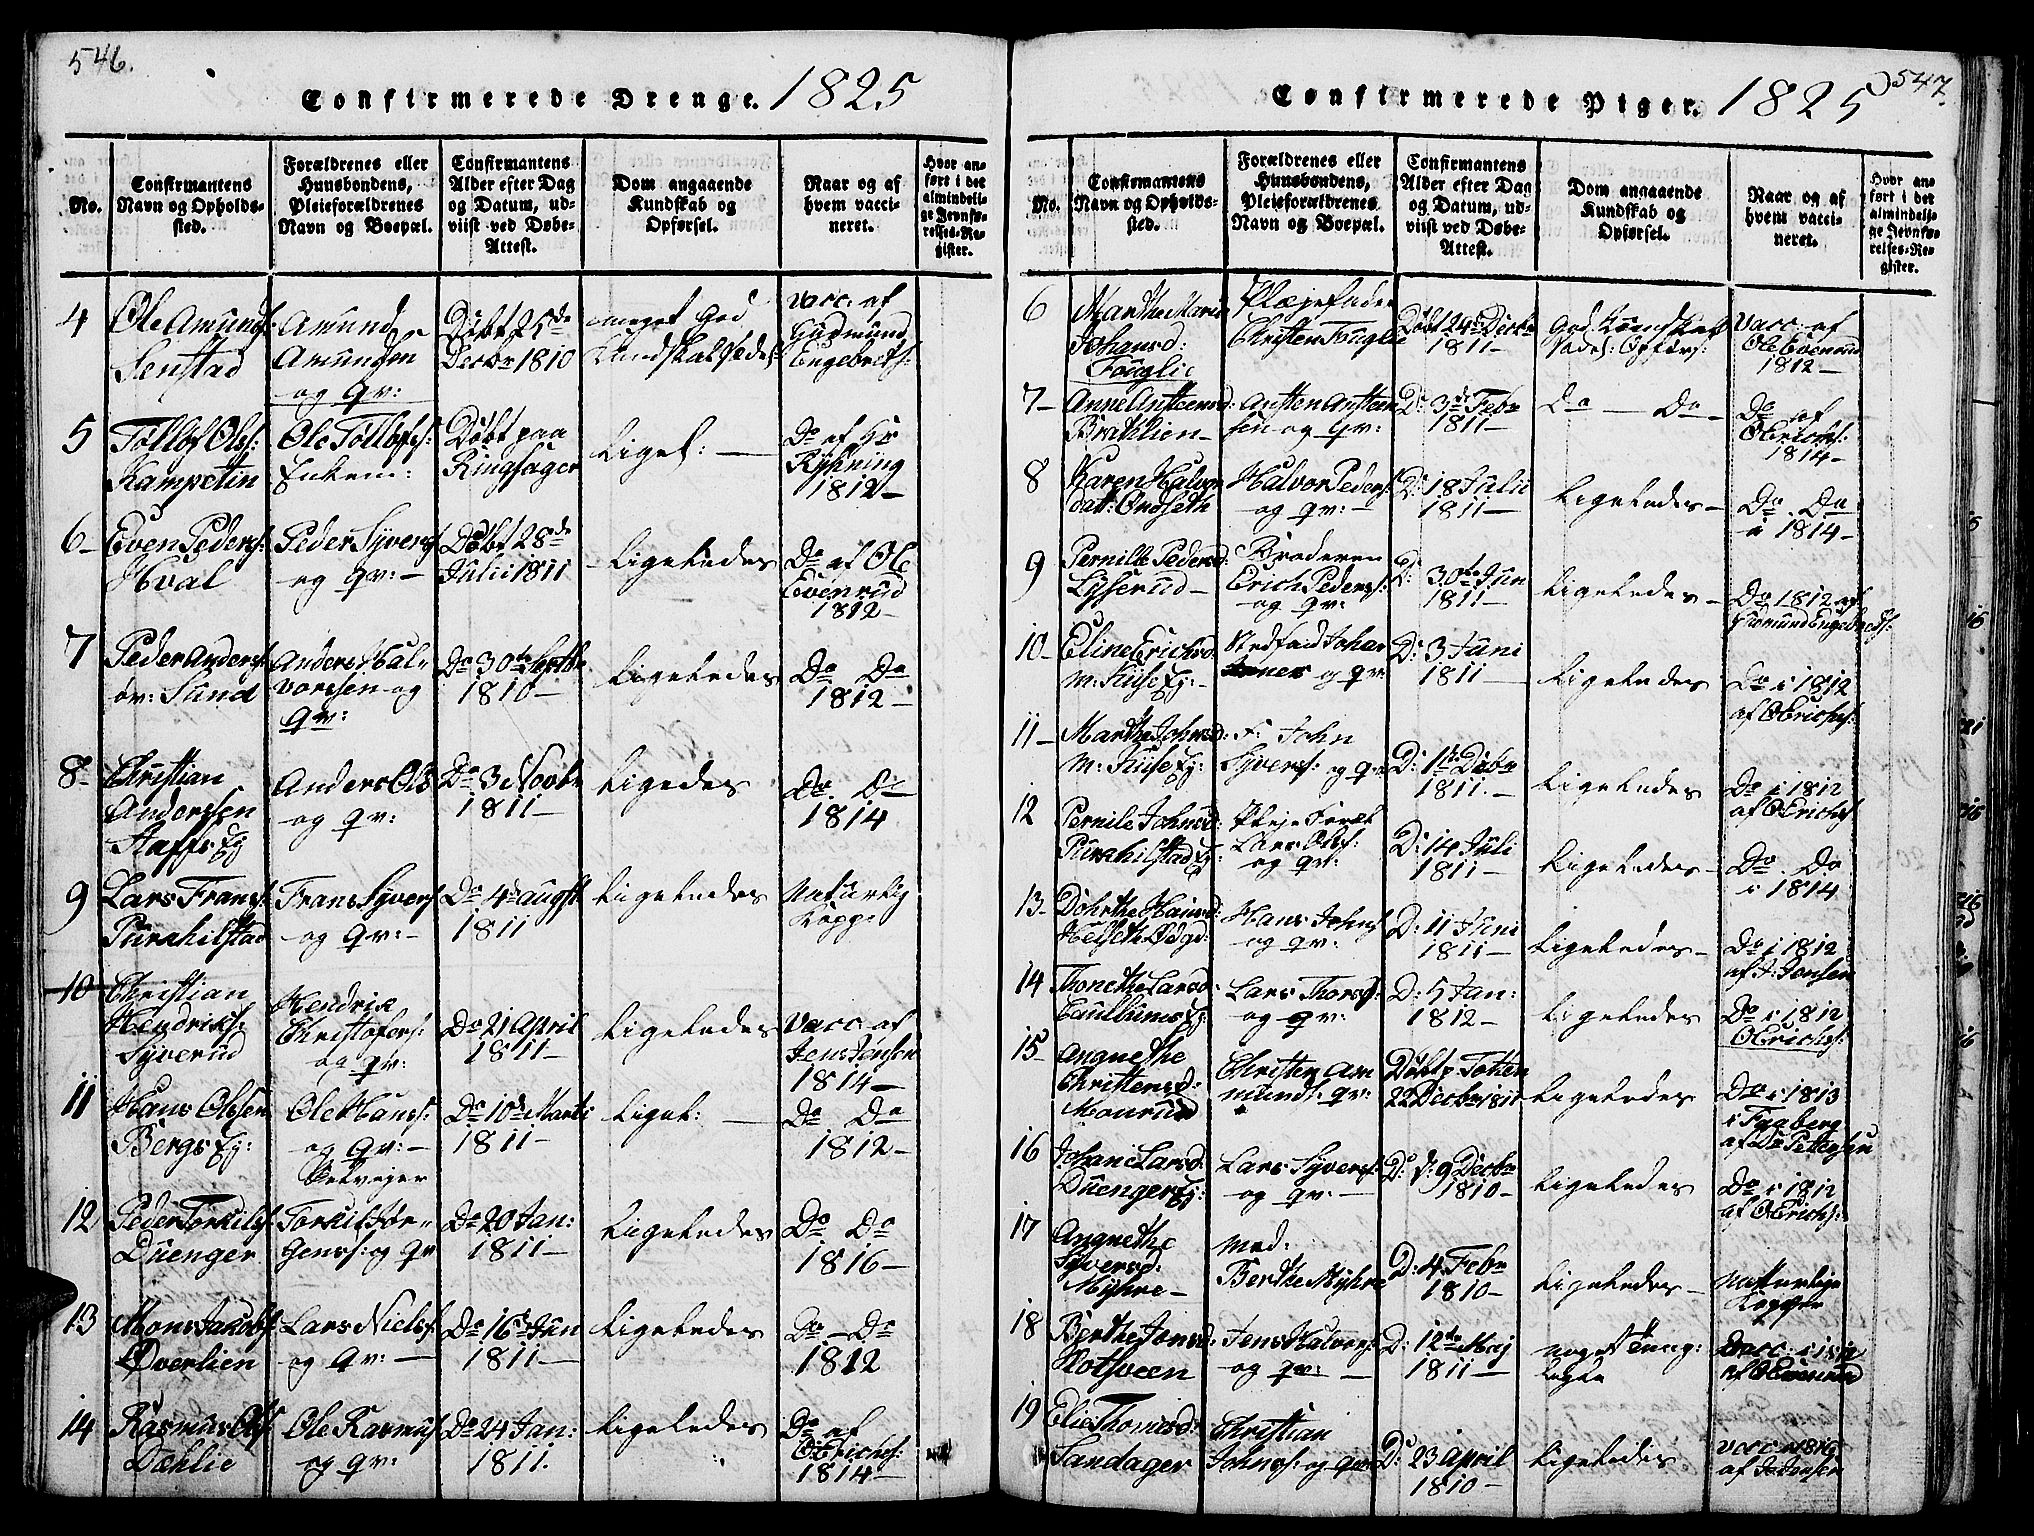 546.
Confirmerede Drenge. 1825
No.
Confirmantens
Navn og Opholds-
sted.
Forældrenes eller
Huusbondens,
Pleieforældrenes
Navn og Boepæl.
Confirmantens
Alder efter Dag
og Datum, ud-
viist ved Døbe-
Attest.
Dom angaaende
Kundskab og
Opførsel.
Naar og af
hvem vacci-
neret.
Hvor an-
ført i det
almindeli-
ge Jevnfø-
relses-Re-
gister.
4
Ole Amunds:
Senstad
Amund
Amundsen
og qv:
Døbt 25de
Decbr 1810
meget god
Kundskab
Vacc: af
Gudmund
Engebrets:
5
Tollof Ols:
Kampetin
Ole Tollofs:
Enken:
Døbt paa
Ringsager
Liges: —
Do af Hr
Rÿhning
1812 —
6 –
Even Peders:
Hval
Peder Syvers:
og qv: —
Døbt 28de
Julii 1811
Ligeledes
Do af Ole
Evenrud
1812 –
7
Peder Anders:
øv: Sund
Anders Hal-
vorssen og
qv:
Do 30te
1810 —
Ligeledes
Do Do
1812 –
8 –
Christian
Anderssen
Staffs Ej
Anders Ols
og qv:
Do 3 Novbr
1811 —
Ligedes
Do Do
1814
9
Lars Frans:
Purkhilstad
Frans Syvers
og qv: –
Do 4de augst
1811
Ligeledes
Naturlig
Kopp:
10
Christian
Hendriks:
Syverud
Hendrik
Christofers:
og qv:
Do 21 April
1811 —
Ligeledes
Vacc: af
Jens Jonsen
1814 —
11
Hans Olsen
Bergs Ej:
Ole Hans:
og qv: —
Do 10de Marti
1811 —
Liget: —
Do Do
1812 –
12
Peder Torkils:
Duenger
Torkil Jør-
gens: og qv
Do 20 Jan:
1811 —
Ligeledes
Do Do
1816 –
13
Mons Jakobs:
Øverlien
Lars Niels:
og qv: —
Do 16de Jun
1811 —
Ligeledes
Do – Do
1812
14
Rasmus Ols:
Dæhlie
Ole Rasmus:
og qv:
Do 24 Jan:
1811.
Ligeledes
Do af
OErichs:
1814 –
547.
Confirmerede Piger. 1825
No.
Confirmantens
Navn og Opholds-
sted.
Forældrenes eller
Huusbondens,
Pleieforældrenes
Navn og Boepæl.
Confirmantens
Alder efter Dag
og Datum, ud-
viist ved Døbe-
Attest.
Dom angaaende
Kundskab og
Opførsel.
Naar og af
hvem vacci-
neret.
Hvor an-
ført i det
almindeli-
ge Jevnfø-
relses-Re-
gister.
6
Marthe Marie
Johansd:
Fouglie
Plejefader
Christen Fouglie
Døbt 24de Decbr
1811 —
god Kundskab
Vacc: af
Ole Evenrud
1812 —
7 –
Anne Austeensd:
Brathlien –
Austen Austeen
sen og qv:
D: 3de Febr
1811 –
Do — Do –
Do af
OErichs:
1814 –
8
Karen Halvor
datt: Ondseth
Halvor Peders:
og qv: —
D: 18 Julii
1811 —
Ligeledes –
Do Do
i 1814 –
9
Pernille Pedersd:
Lysserud –
Broderen
Erich Peders:
og qv:
D: 30te Jun
1811 —
Ligeledes –
Do 1812 af
Gudmund Engebreds:
10 –
Eline Erichsd:
m: Kuse Ej: –
Stedfad: Johan
og qv:
D: 3 Juni
1811 —
Ligeledes
Do i 1812
af OErichs:
11 –
Marthe Johnsd:
m: Kuse Ej:
F: John
Syvers: og qv:
D: 1te Decbr
1811. –
Ligeledes
Do i 1812
af OErichs
12
Pernile Johnsd:
Purkhilstad Ej:
Pleje Foræl
Lars Ols:
og qv:
D: 14 Juli
1811 —
Ligeledes –
Do Do
i 1814
13 –
Dohrthe Hansd:
Helseth
Hans Johns
og qv:
D: 11 Juni
1811 —
Ligeledes –
Do i 1812
af J: Jonsen
14
Thonethe Larsd:
Lars Thors:
og qv:
D: 5 Jan:
1812 –
Ligeledes
Do i 1812
OErichs:
15
Angnethe
Christensd:
Maurud
Christen Am
munds: qv:
Døbt p: Totten
22 Decbr 1811
Ligeledes
Do i 1813
i Faaberg
af Do Pettersen
16
Johane Larsd:
Duenger Ej:
Lars Syvers:
og qv: —
D: d: 9 Decbr
1810 –
Ligeledes
Do i 1812
af OErichs:
17
Angnethe
Syversd:
Myhre –
mod:
Berthe Myhre
D: 4 Febr
1810 –
Ligeledes –
Naturlige
Kopper
18
Berthe Jonsd:
Rotsveen
Jens Halvors:
og qv: —
D: 12te Maj
1811 —
noget
Vacc: i 1812
af OEvenrud
19
Elie Thomesd:
Sandager
Christian
Johns: og qv:
D: 23 April
1810 —
Ligeledes
vacc 1816
af J: Jonsen